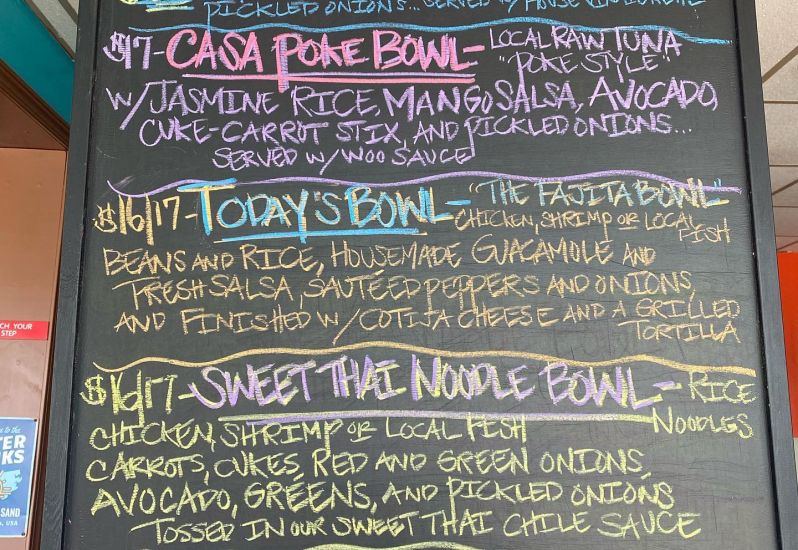 PICKLED ONIONS... SERVED W/ HOUSE VINAIGRETTE
$17- CASA POKE BOWL- LOCAL RAW TUNA
"POKE STYLE"
W/ JASMINE RICE, MANGO SALSA, AVOCADO,
CUKE-CARROT STIX, AND PICKLED ONIONS...
SERVED W/ WOO SAUCE
$16/17- TODAY'S BOWL- "THE FAJITA BOWL"
CHICKEN, SHRIMP OR LOCAL
FISH
BEANS AND RICE, HOUSEMADE GUACAMOLE AND
FRESH SALSA, SAUTÉED PEPPERS AND ONIONS,
AND FINISHED W/ COTIJA CHEESE AND A GRILLED
TORTILLA
$16/17- SWEET THAI NOODLE BOWL- RICE
NOODLES
CHICKEN, SHRIMP OR LOCAL FISH
CARROTS, CUKES, RED AND GREEN ONIONS,
AVOCADO, GREENS, AND PICKLED ONIONS
TOSSED IN OUR SWEET THAI CHILE SAUCE
CH YOUR
STEP
SAND
USA